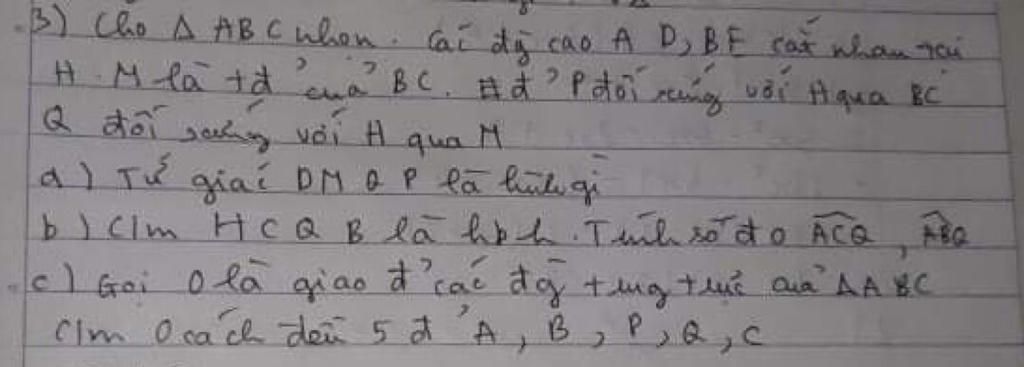 3) Cho Δ ABC nhọn. Các đg̀ cao A D, BE cắt nhau tại
H. M là tđ' của BC. đ' P đối xứng với H qua BC
Q đối xứng với H qua M
a) Tứ giác DMQP là hình gì
b) C/m HCQB là hbh. Tính số đo ACQ, ABQ
c) Gọi O là giao đ' các đg̀ trung trực của ΔABC
C/m O cách đều 5 đ' A, B, P, Q, C